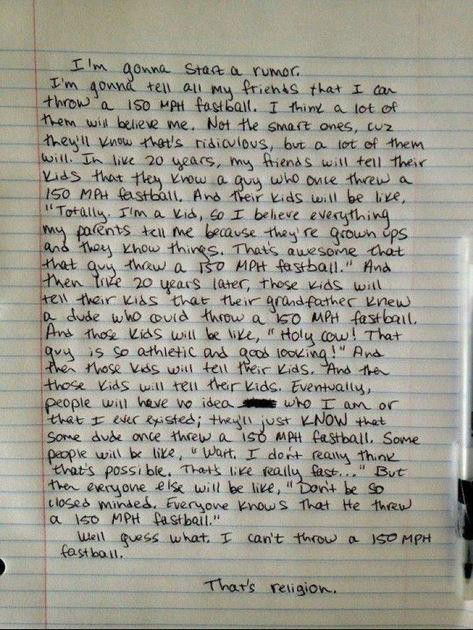 I'm gonna start a rumor.
I'm gonna tell all my friends that I can
throw a 150 MPH fastball. I think a lot of
them will believe me. Not the smart ones, cuz
they'll know that's ridiculous, but a lot of them
will. In like 20 years, my friends will tell their
kids that they know a guy who once threw a
150 MPH fastball. And their kids will be like,
"Totally. I'm a kid, so I believe everything
my parents tell me because they're grown ups
and they know things. That's awesome that
that guy threw a 150 MPH fastball." And
then like 20 years later, those kids will
tell their kids that their grandfather knew
a dude who could throw a 150 MPH fastball.
And those kids will be like, "Holy cow! That
guy is so athletic and good looking!" And
then those kids will tell their kids. And then
those kids will tell their kids. Eventually,
people will have no idea who I am or
that I ever existed; they'll just KNOW that
some dude once threw a 150 MPH fastball. Some
people will be like, "Wait. I don't really think
that's possible. That's like really fast..." But
then everyone else will be like, "Don't be so
closed minded. Everyone knows that He threw
a 150 MPH fastball."
Well guess what. I can't throw a 150 MPH
fastball.
That's religion.